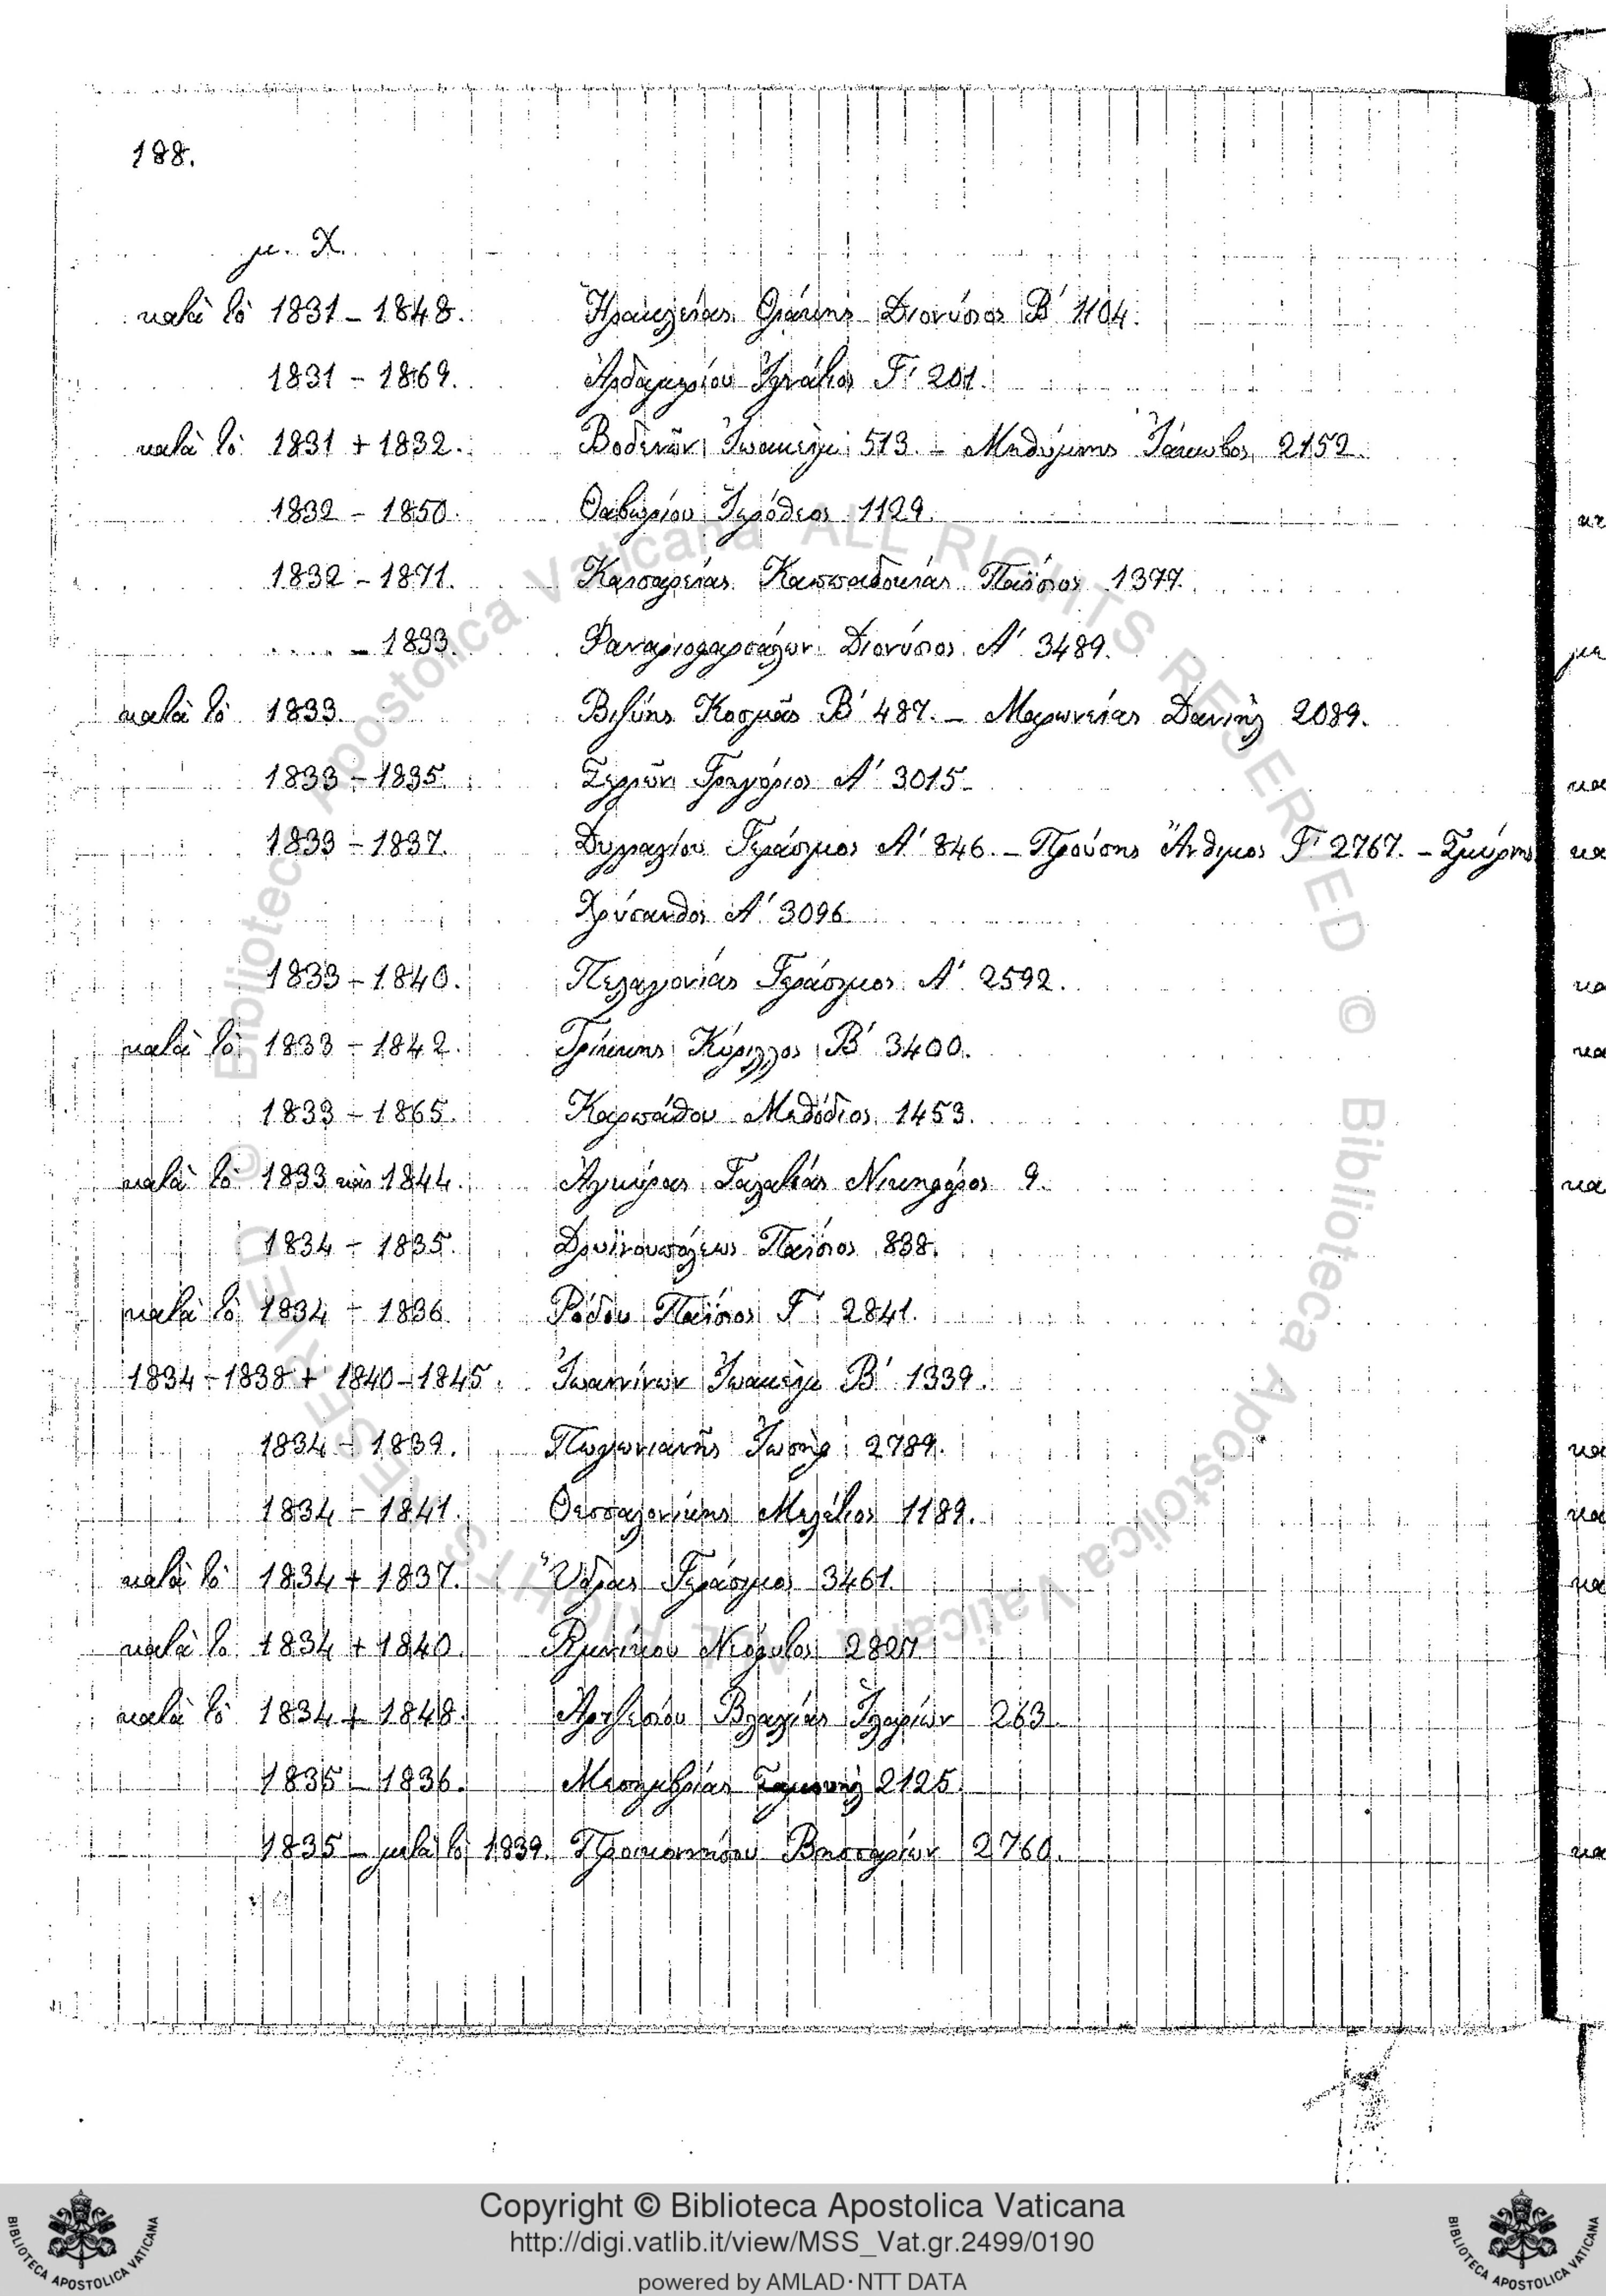 188.
μ. Χ.
κατὰ τὸ 1831 – 1848. Ἡρακλείας Θράκης Διονύσιος Β΄ 1104.
1831 – 1869. Ἀρδαμερίου Ἰγνάτιος Γ΄ 201.
κατὰ τὸ 1831 + 1832. Βοδενῶν Ἰωακεὶμ 513. – Μηθύμνης Ἰάκωβος 2152.
1832 – 1850. Θαβωρίου Ἱερόθεος 1129.
1832 – 1871. Καισαρείας Καππαδοκίας Παΐσιος 1377.
..... – 1833. Φαναριοφαρσάλων Διονύσιος Α΄ 3489.
κατὰ τὸ 1833. Βιζύης Κοσμᾶς Β΄ 487. – Μαρωνείας Δανιὴλ 2089.
1833 – 1835. Σερρῶν Γρηγόριος Α΄ 3015.
1833 – 1837. Δυρραχίου Γεράσιμος Α΄ 846. – Προύσης Ἄνθιμος Γ΄ 2767. – Σμύρνης
Χρύσανθος Α΄ 3096.
1833 – 1840. Πελαγονίας Γεράσιμος Α΄ 2592.
κατὰ τὸ 1833 – 1842. Τρίκκης Κύριλλος Β΄ 3400.
1833 – 1865. Καρπάθου Μεθόδιος 1453.
κατὰ τὸ 1833 καὶ 1844. Ἀγκύρας Γαλατίας Νικηφόρος 9.
1834 – 1835. Δρυϊνουπόλεως Παΐσιος 838.
κατὰ τὸ 1834 – 1836. Ρόδου Παΐσιος Γ΄ 2841.
1834 – 1838 + 1840 – 1845. Ἰωαννίνων Ἰωακεὶμ Β΄ 1339.
1834 – 1839. Πωγωνιανῆς Ἰωσὴφ 2789.
1834 – 1841. Θεσσαλονίκης Μελέτιος 1189.
κατὰ τὸ 1834 + 1837. Ὕδρας Γεράσιμος 3461.
κατὰ τὸ 1834 + 1840. Ρυμνίκου Νεόφυτος 2827.
κατὰ τὸ 1834 + 1848. Ἀρτζεσίου Βλαχίας Ἱλαρίων 263.
1835 – 1836. Μεσημβρίας Σαμουὴλ 2125.
1835 – μετὰ τὸ 1839. Προικοννήσου Βησσαρίων 2760.
Copyright © Biblioteca Apostolica Vaticana
http://digi.vatlib.it/view/MSS_Vat.gr.2499/0190
powered by AMLAD·NTT DATA